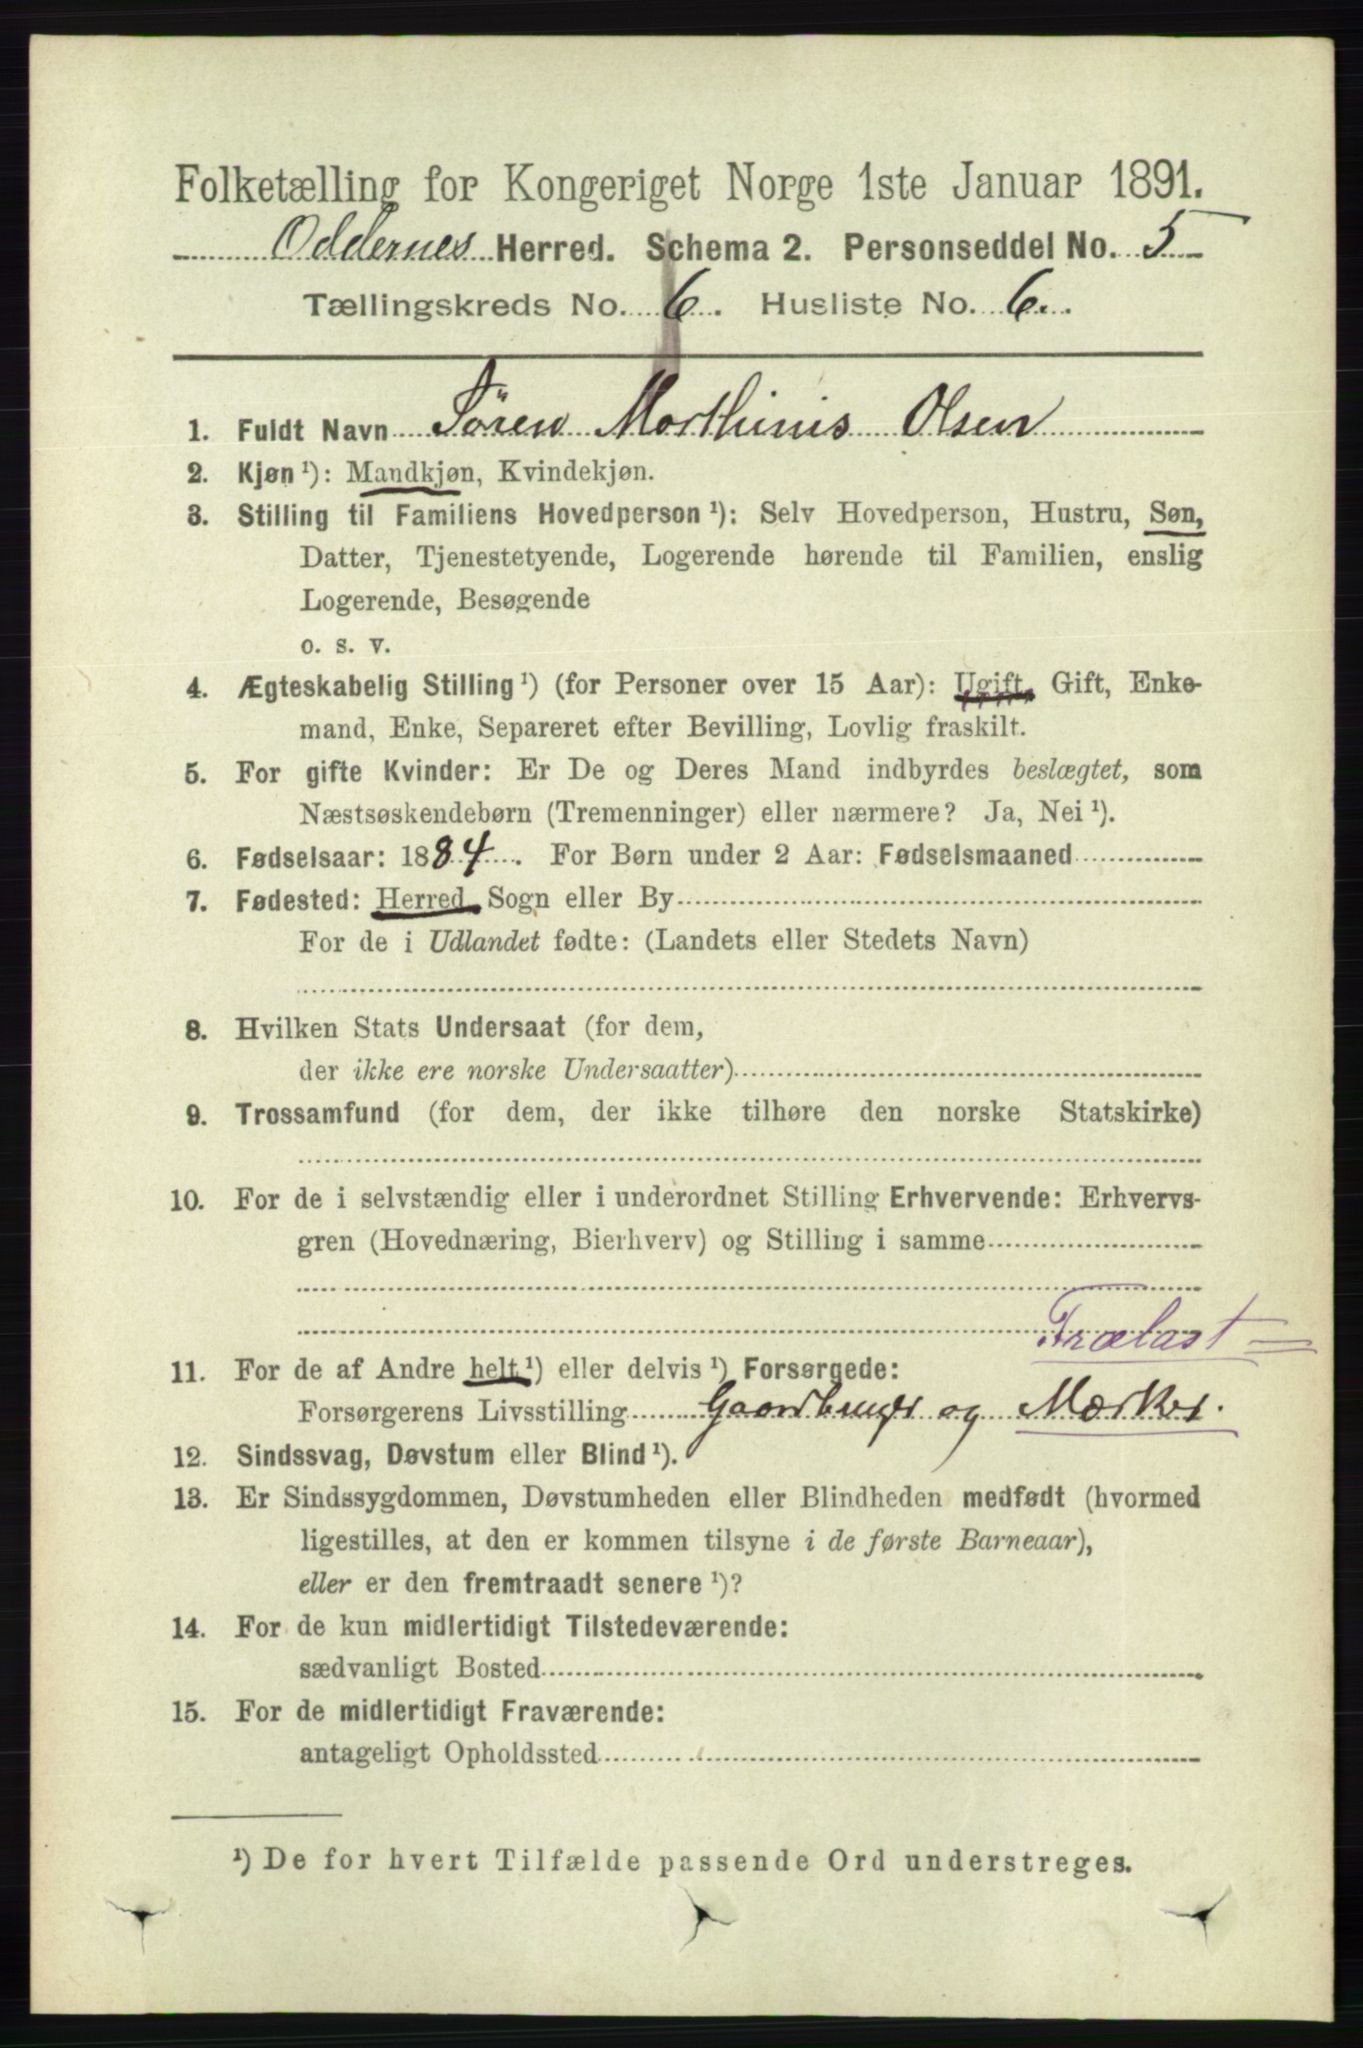 Folketælling for Kongeriget Norge 1ste Januar 1891.
Oddernes Herred. Schema 2. Personseddel No. 5
Tællingskreds No. 6. Husliste No. 6.
1. Fuldt Navn Sören Marthinis Olsen
2. Kjøn ¹): Mandkjøn, Kvindekjøn.
3. Stilling til Familiens Hovedperson ¹): Selv Hovedperson, Hustru, Søn,
Datter, Tjenestetyende, Logerende hørende til Familien, enslig
Logerende, Besøgende
o. s. v.
4. Ægteskabelig Stilling ¹) (for Personer over 15 Aar): Ugift, Gift, Enke-
mand, Enke, Separeret efter Bevilling, Lovlig fraskilt.
5. For gifte Kvinder: Er De og Deres Mand indbyrdes beslægtet, som
Næstsøskendebørn (Tremenninger) eller nærmere? Ja, Nei ¹).
6. Fødselsaar: 1884. For Børn under 2 Aar: Fødselsmaaned
7. Fødested: Herred, Sogn eller By
For de i Udlandet fødte: (Landets eller Stedets Navn)
8. Hvilken Stats Undersaat (for dem,
der ikke ere norske Undersaatter)
9. Trossamfund (for dem, der ikke tilhøre den norske Statskirke)
10. For de i selvstændig eller i underordnet Stilling Erhvervende: Erhvervs-
gren (Hovednæring, Bierhverv) og Stilling i samme
Trælast =
11. For de af Andre helt ¹) eller delvis ¹) Forsørgede:
Forsørgerens Livsstilling Gaardbruger og Mærker.
12. Sindssvag, Døvstum eller Blind ¹).
13. Er Sindssygdommen, Døvstumheden eller Blindheden medfødt (hvormed
ligestilles, at den er kommen tilsyne i de første Barneaar),
eller er den fremtraadt senere ¹)?
14. For de kun midlertidigt Tilstedeværende:
sædvanligt Bosted
15. For de midlertidigt Fraværende:
antageligt Opholdssted
¹) De for hvert Tilfælde passende Ord understreges.